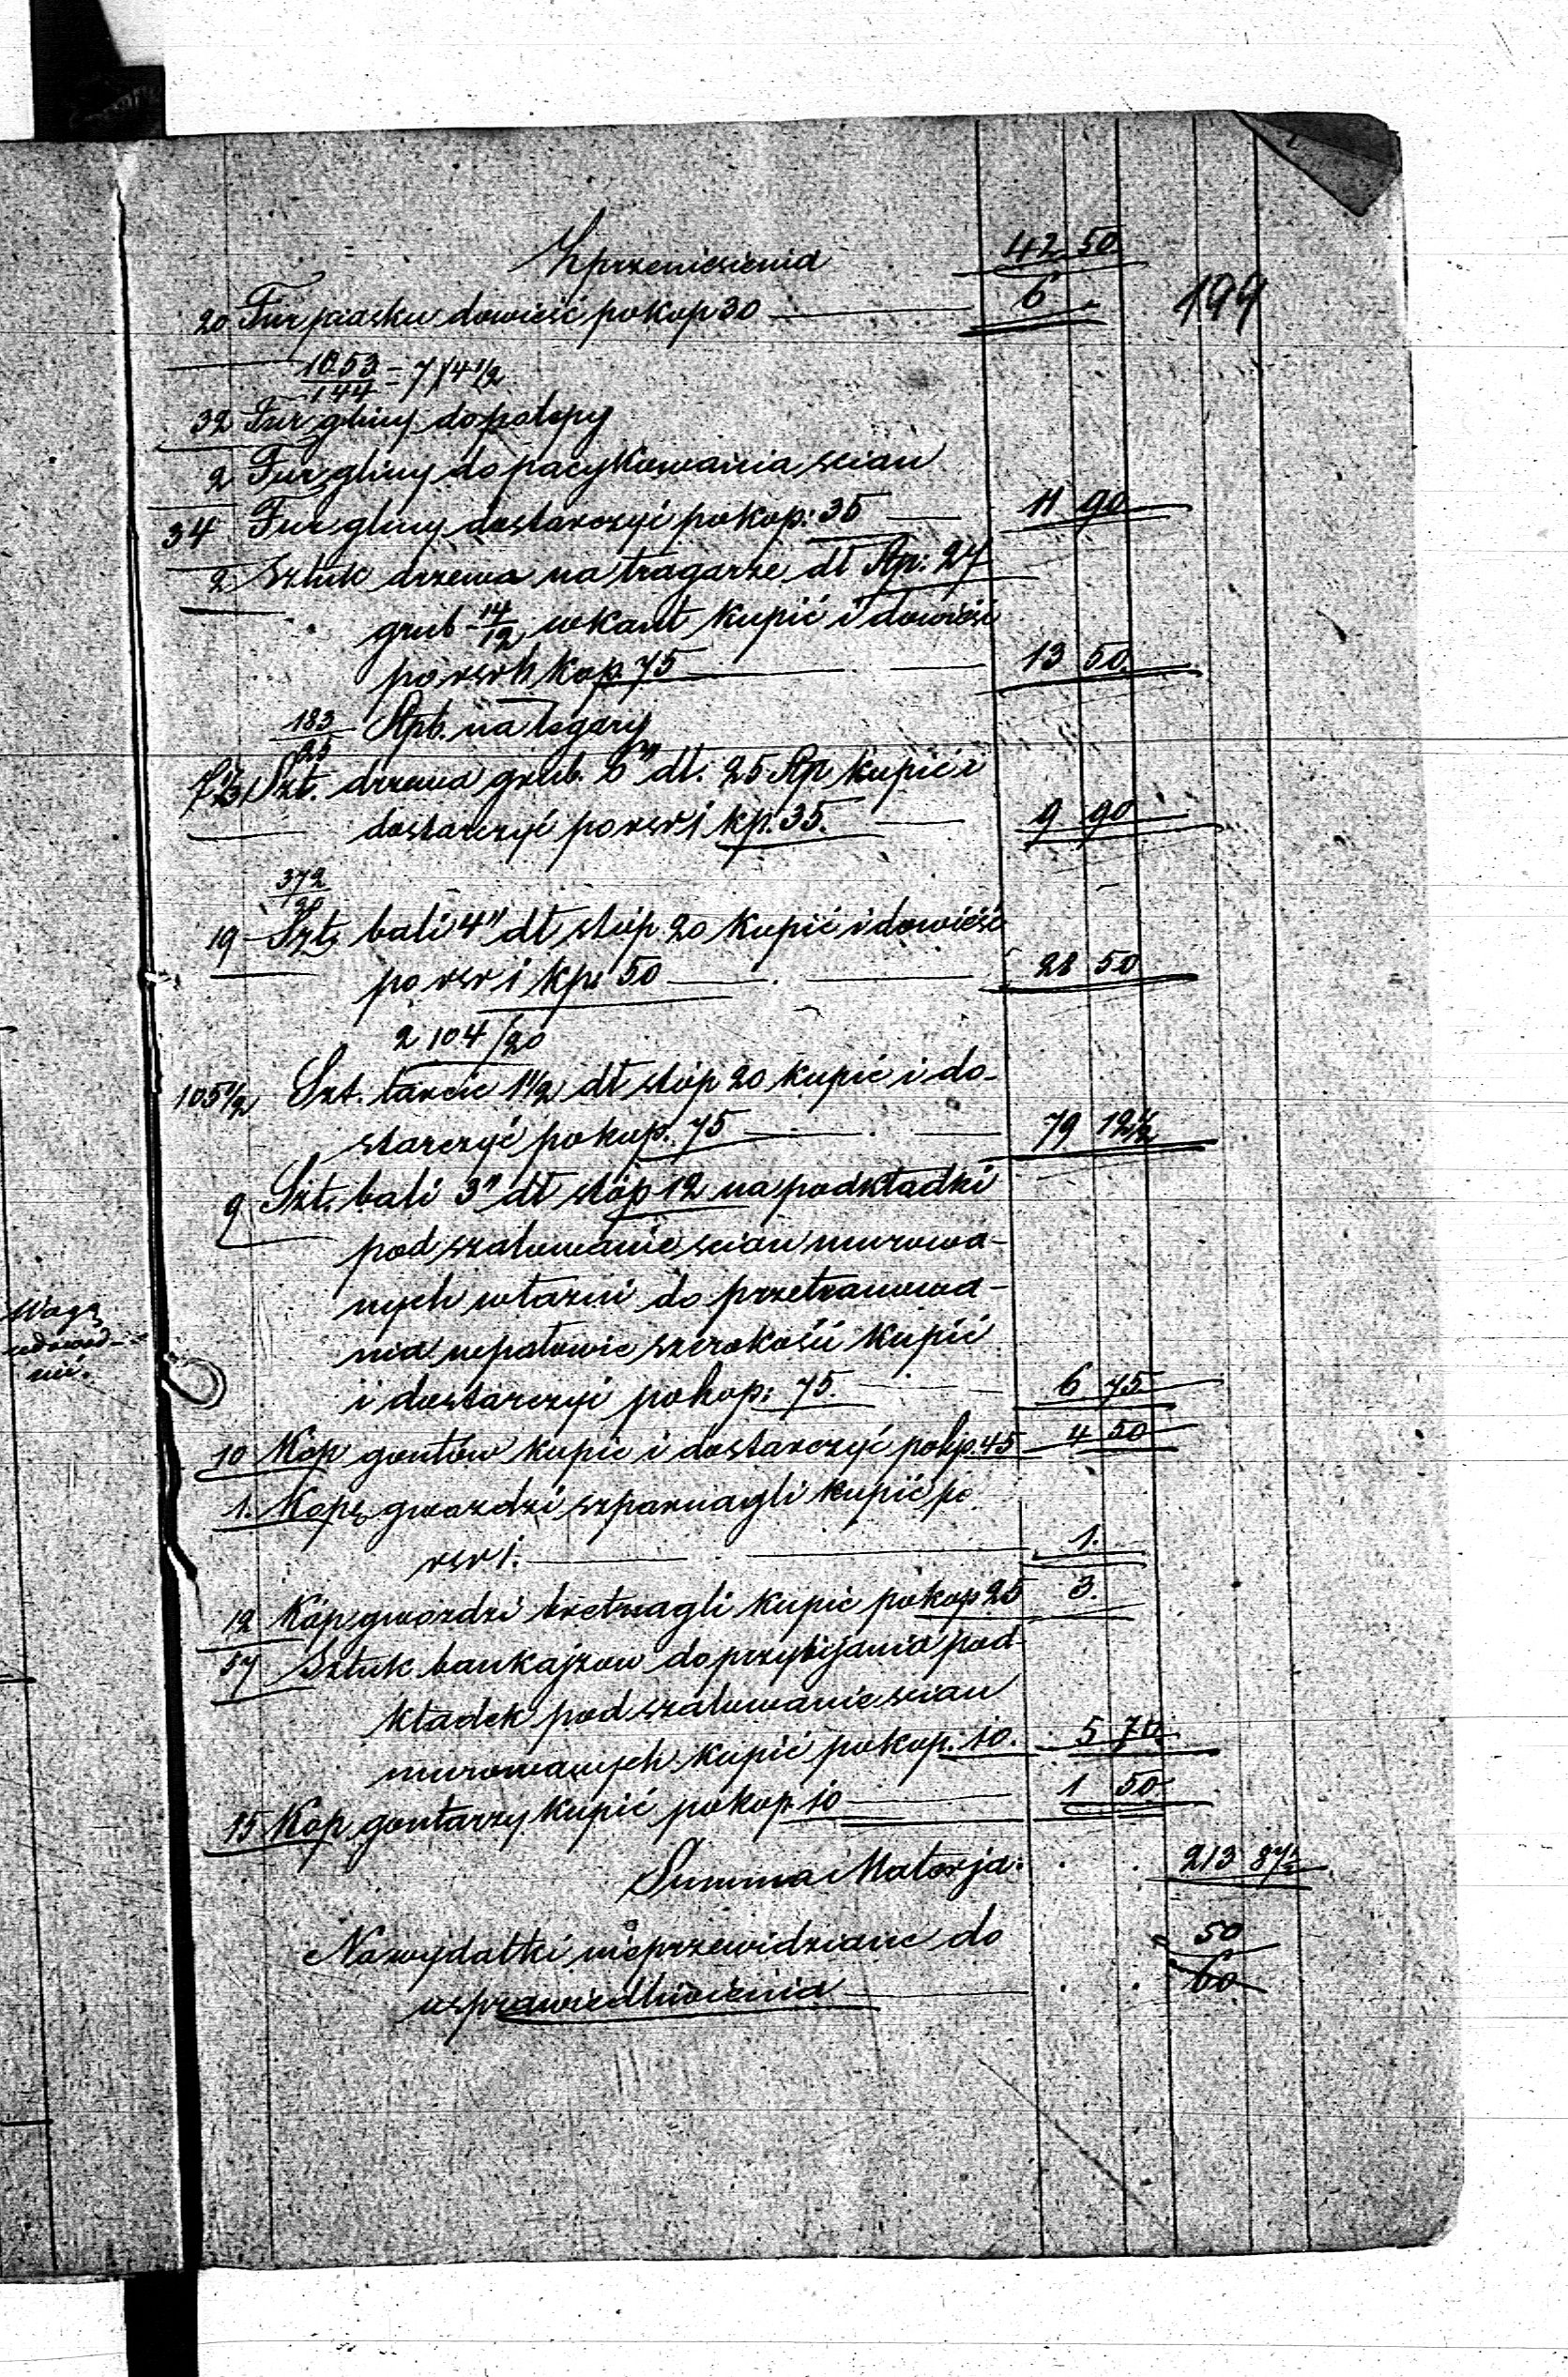 Z przeniesienia 42 50
20 Fur piasku dowieść po kop 30 6 „
199
1053/144 = 7/4 1/2
32 Fur gliny do polepy
2 Fur gliny do pacykowania scian
34 Fur gliny dostarczyć po kop: 35 11 90
2 Sztuk drzewa na tragarze dł Stp: 27
grub 14/12 w kant kupić i dowieść
po rsr 6 kop 75 13 50
183/25 Stpb. na legary
7 1/3 Szt. drzewa grub. 6" dł. 25 Stp kupić i
dostarczyć po rsr 1 kp. 35. 9 90
372/20
19 Szt. bali 4" dł stóp 20 kupić i dowieść
po rsr 1 kp: 50 28 50
2104/20
105 1/2 Szt. tarcic 1 1/2 dł stóp 20 kupić i do-
starczyć po kop. 75 79 12 1/2
9 Szt. bali 3" dł stóp 12 na podkładki
pod szalowanie scian murowa-
nych w łazni do przetran
nia w połowie szerokości kupić
i dostarczyć po kop: 75. 6 75
10 Kop gontów kupić i dostarczyć po kp. 45 4 50
1. Kopę gwozdzi szparnagli kupić po
rsr 1. 1.
12 Kop gwozdzi bretnagli kupić po kop 25 3.
57 Sztuk bankajzow do przybijania pod-
kładek pod szalowanie scian
murowanych kupić po kop. 10. 5 70
15 Kop gontarzy kupić po kop. 10 1 50
Summa Materja: 213 87 1/2
Na wydatki nieprzewidziane do 50
usprawiedliwienia 60
Wagę
nić.